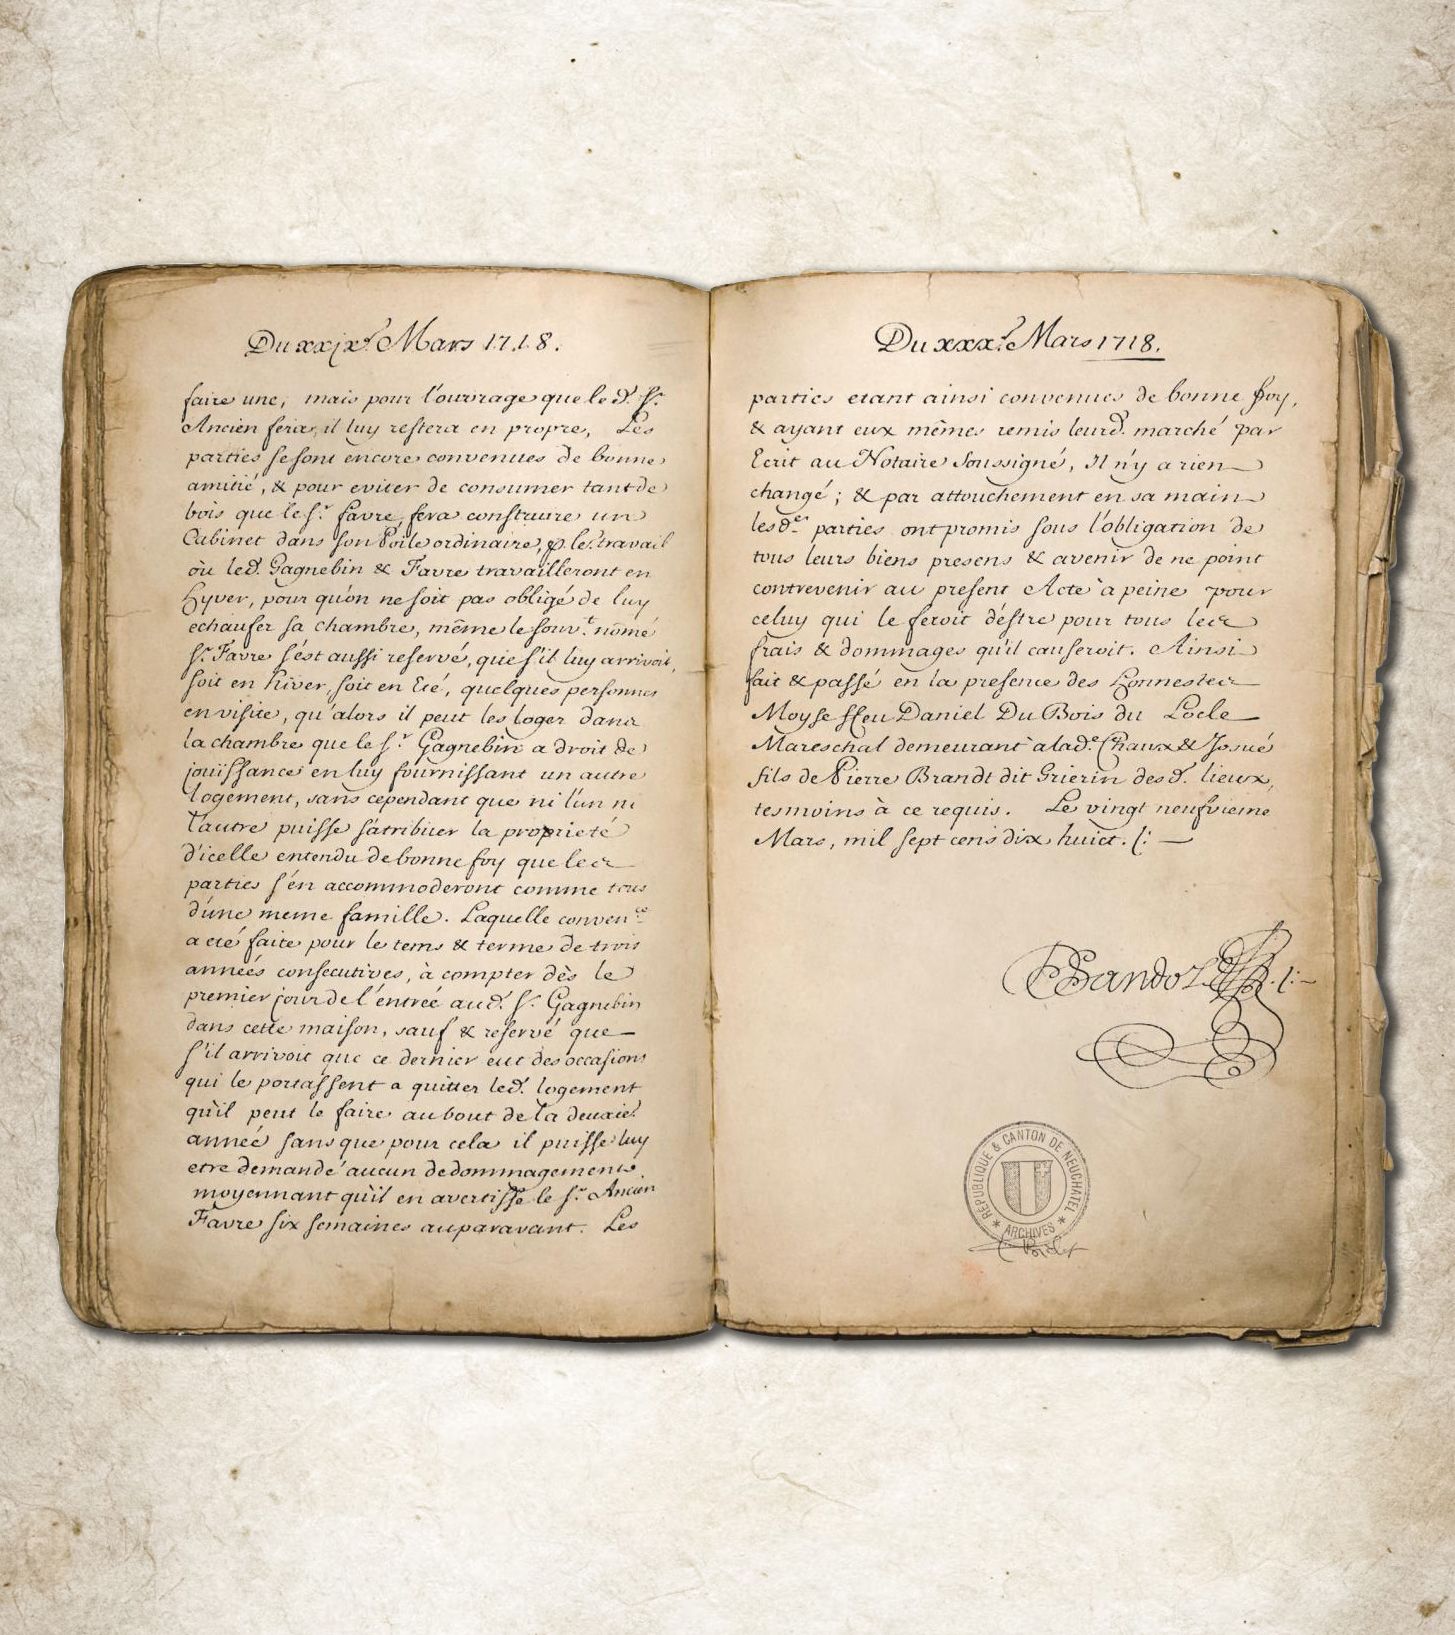 Du xxjx.e Mars 1718.
faire une, mais pour l'ouvrage que le d. Sr.
Ancien fera, il luy restera en propre, Les
parties se sont encore convenues de bonne
amitié, & pour eviter de consumer tant de
bois que le Sr. Favre, fera construire un
Cabinet dans son Poile ordinaire, p. le travail
où le d. Gagnebin & Favre travailleront en
Hyver, pour qu'on ne soit pas obligé de luy
echaufer sa chambre, même le souv.t nomé
Sr. Favre s'est aussi reservé, que s'il luy arrivoit,
soit en hiver, soit en Eté, quelques personnes
en visite, qu'alors il peut les loger dans
la chambre que le Sr. Gagnebin a droit de
jouissance en luy fournissant un autre
logement, sans cependant que ni l'un ni
l'autre puisse s'atribuer la proprieté
d'icelle entendu de bonne foy que les
parties s'en accommoderont comme tous
d'une meme famille. Laquelle conven.ce
a eté faite pour le tems & terme de trois
années consecutives, à compter dès le
premier jour de l'entreé au d. Sr. Gagnebin
dans cette maison, sauf & reservé que
s'il arrivoit que ce dernier eut des occasions
qui le portassent a quitter le d. logement
qu'il peut le faire au bout de la deuxie.
anneé sans que pour cela il puisse luy
etre demandé aucun dedommagement.
moyennant qu'il en avertisse le Sr. Ancien
Favre six semaines auparavant. Les
Du xxx.e Mars 1718.
parties etant ainsi convenues de bonne foy,
& ayant eux mêmes remis leur d. marché par
Ecrit au Notaire soussigné, Il n'y a rien
changé; & par attouchement en sa main
les d.es parties ont promis sous l'obligation de
tous leurs biens presens & avenir de ne point
contrevenir au present Acte à peine pour
celuy qui le feroit d'éstre pour tous les
frais & dommages qu'il causeroit. Ainsi
fait & passé en la presence des Honnestes
Moyse ffeu Daniel Du Bois du Locle
Mareschal demeurant à la d.e Chaux & Josué
fils de Pierre Brandt dit Grierin des d. lieux,
tesmoins à ce requis. Le vingt neufvieme
Mars, mil sept cens dix huict.
Sandoz
RÉPUBLIQUE & CANTON DE NEUCHATEL
* ARCHIVES *